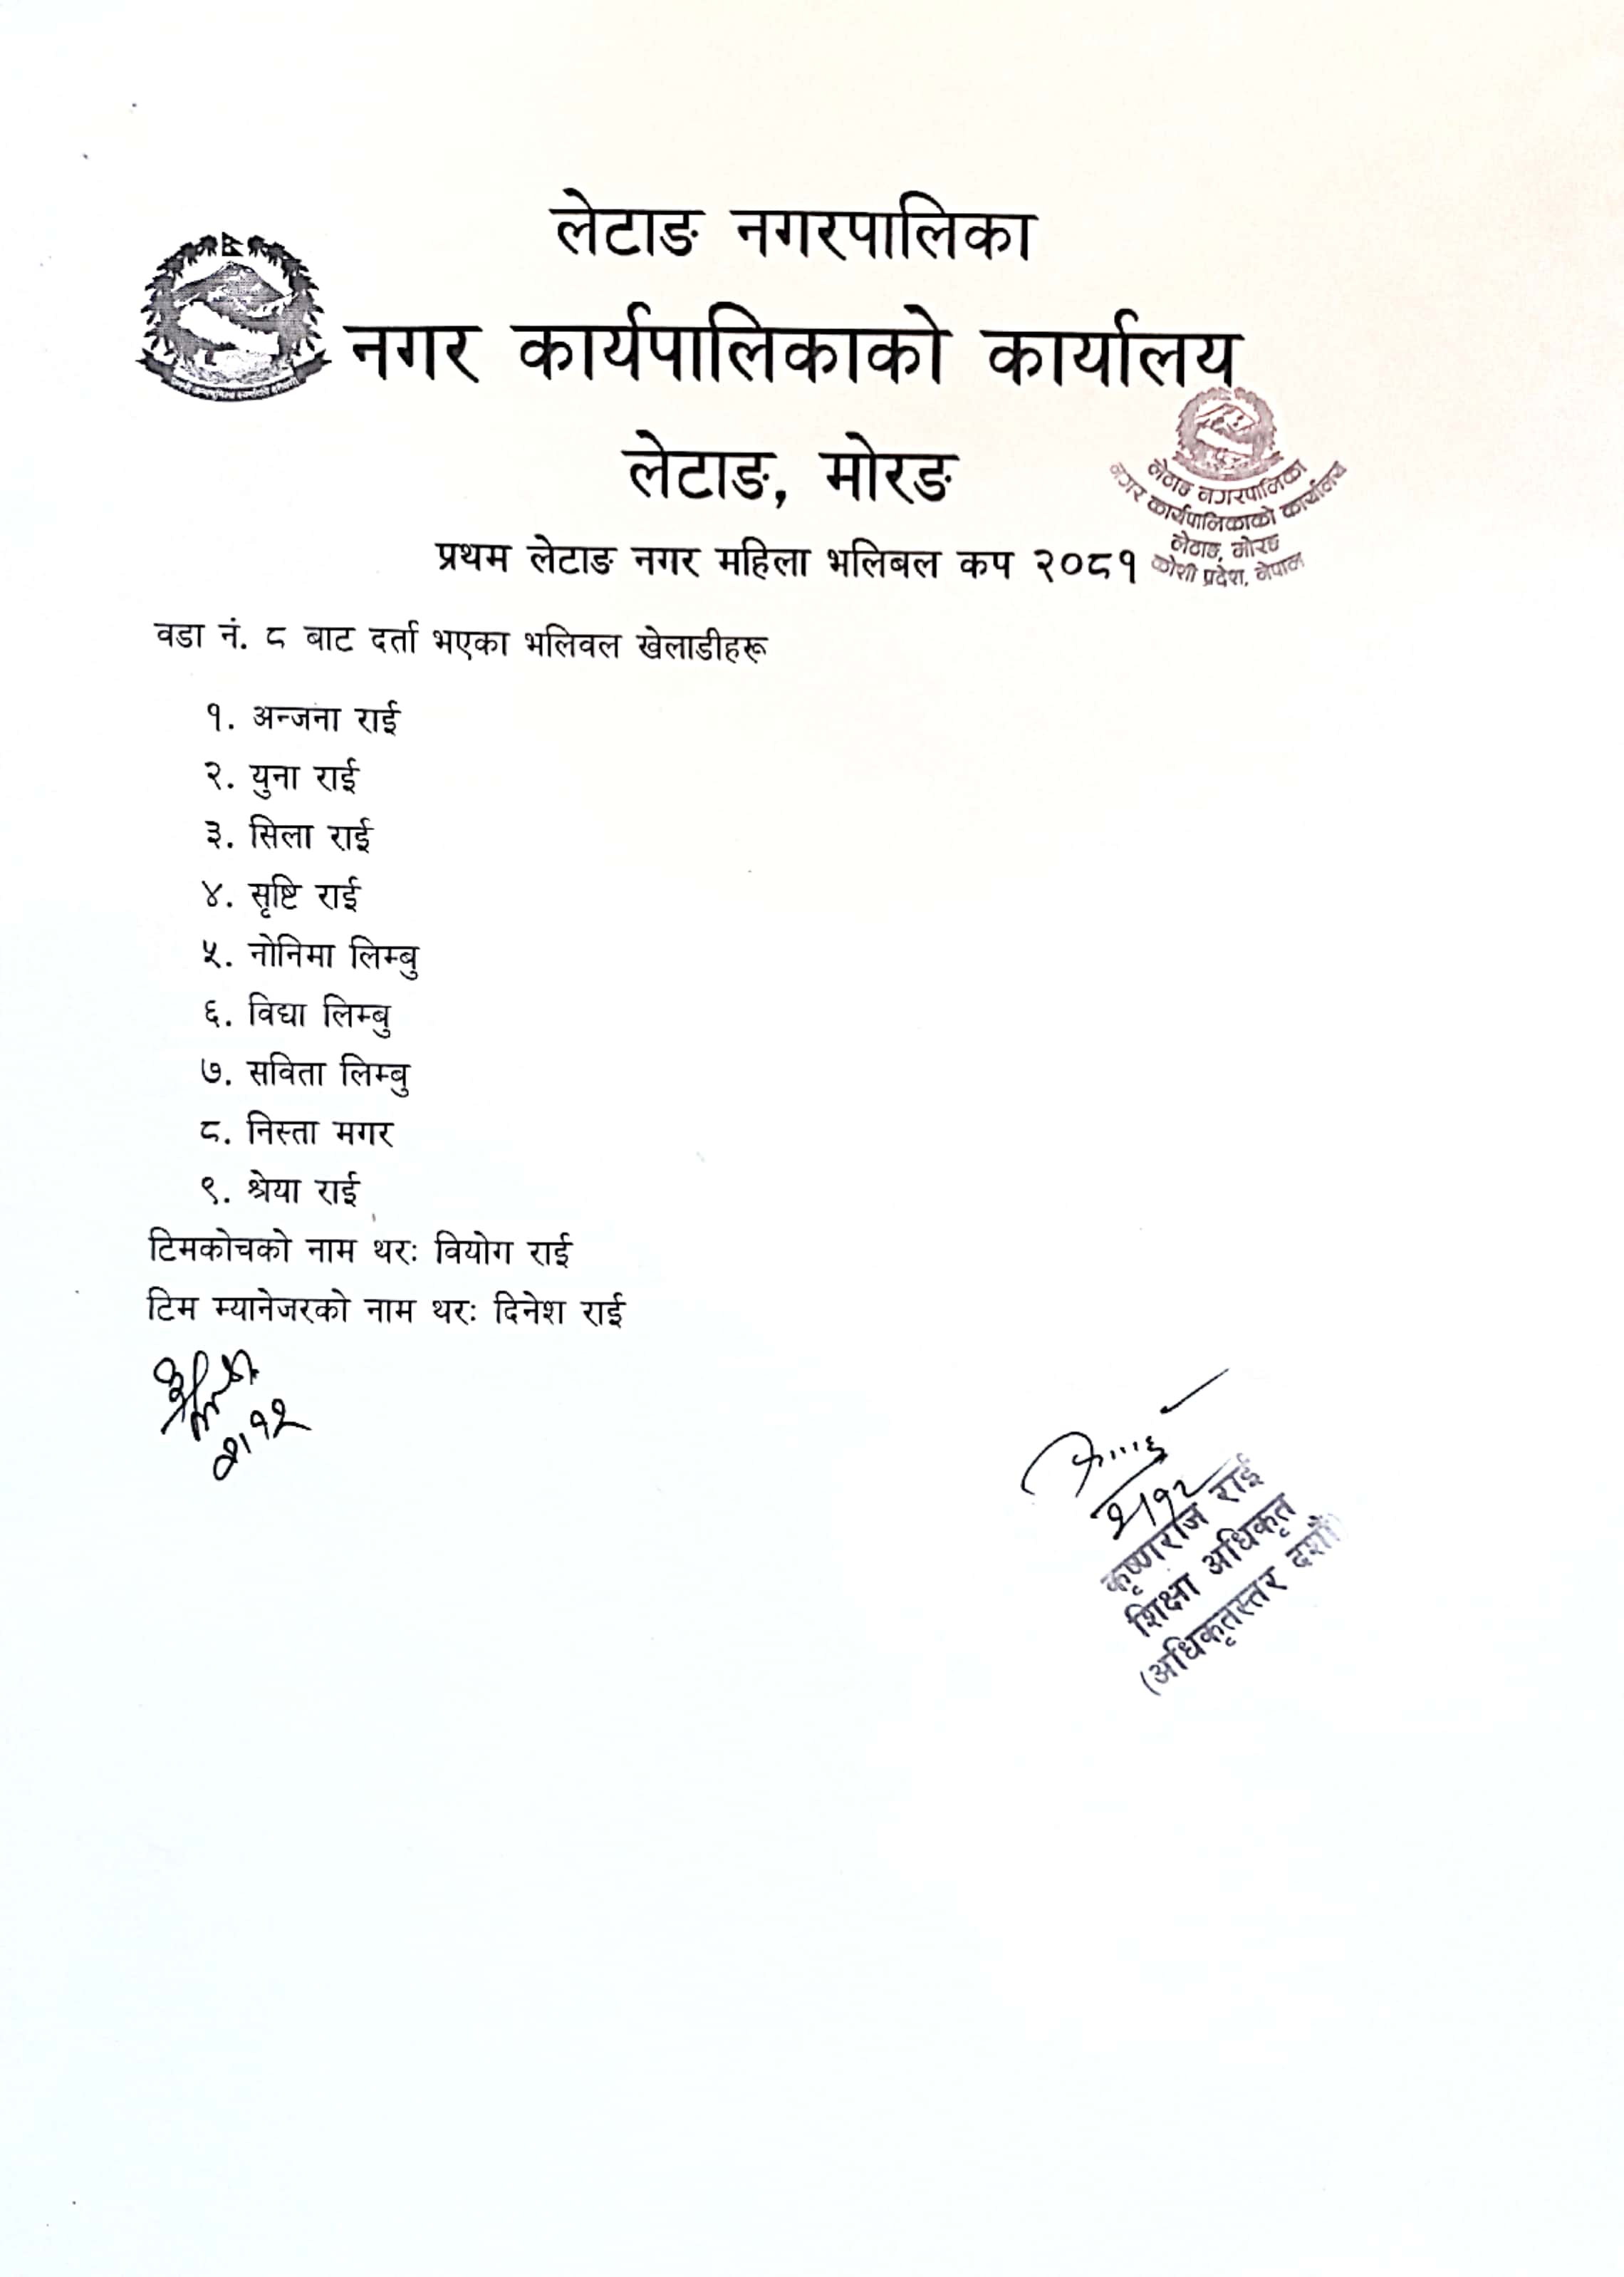 लेटाङ नगरपालिका
नगर कार्यपालिकाको कार्यालय
लेटाङ, मोरङ
लेटाङ नगरपालिका
नगर कार्यपालिकाको कार्यालय
लेटाङ, मोरङ
कोशी प्रदेश, नेपाल
प्रथम लेटाङ नगर महिला भलिबल कप २०८१
वडा नं. ८ बाट दर्ता भएका भलिवल खेलाडीहरू
१. अन्जना राई
२. युना राई
३. सिला राई
४. सृष्टि राई
५. नोनिमा लिम्बु
६. विद्या लिम्बु
७. सविता लिम्बु
८. निस्ता मगर
९. श्रेया राई
टिमकोचको नाम थरः वियोग राई
टिम म्यानेजरको नाम थरः दिनेश राई
कृष्णराज राई
शिक्षा अधिकृत
(अधिकृतस्तर दशौं)